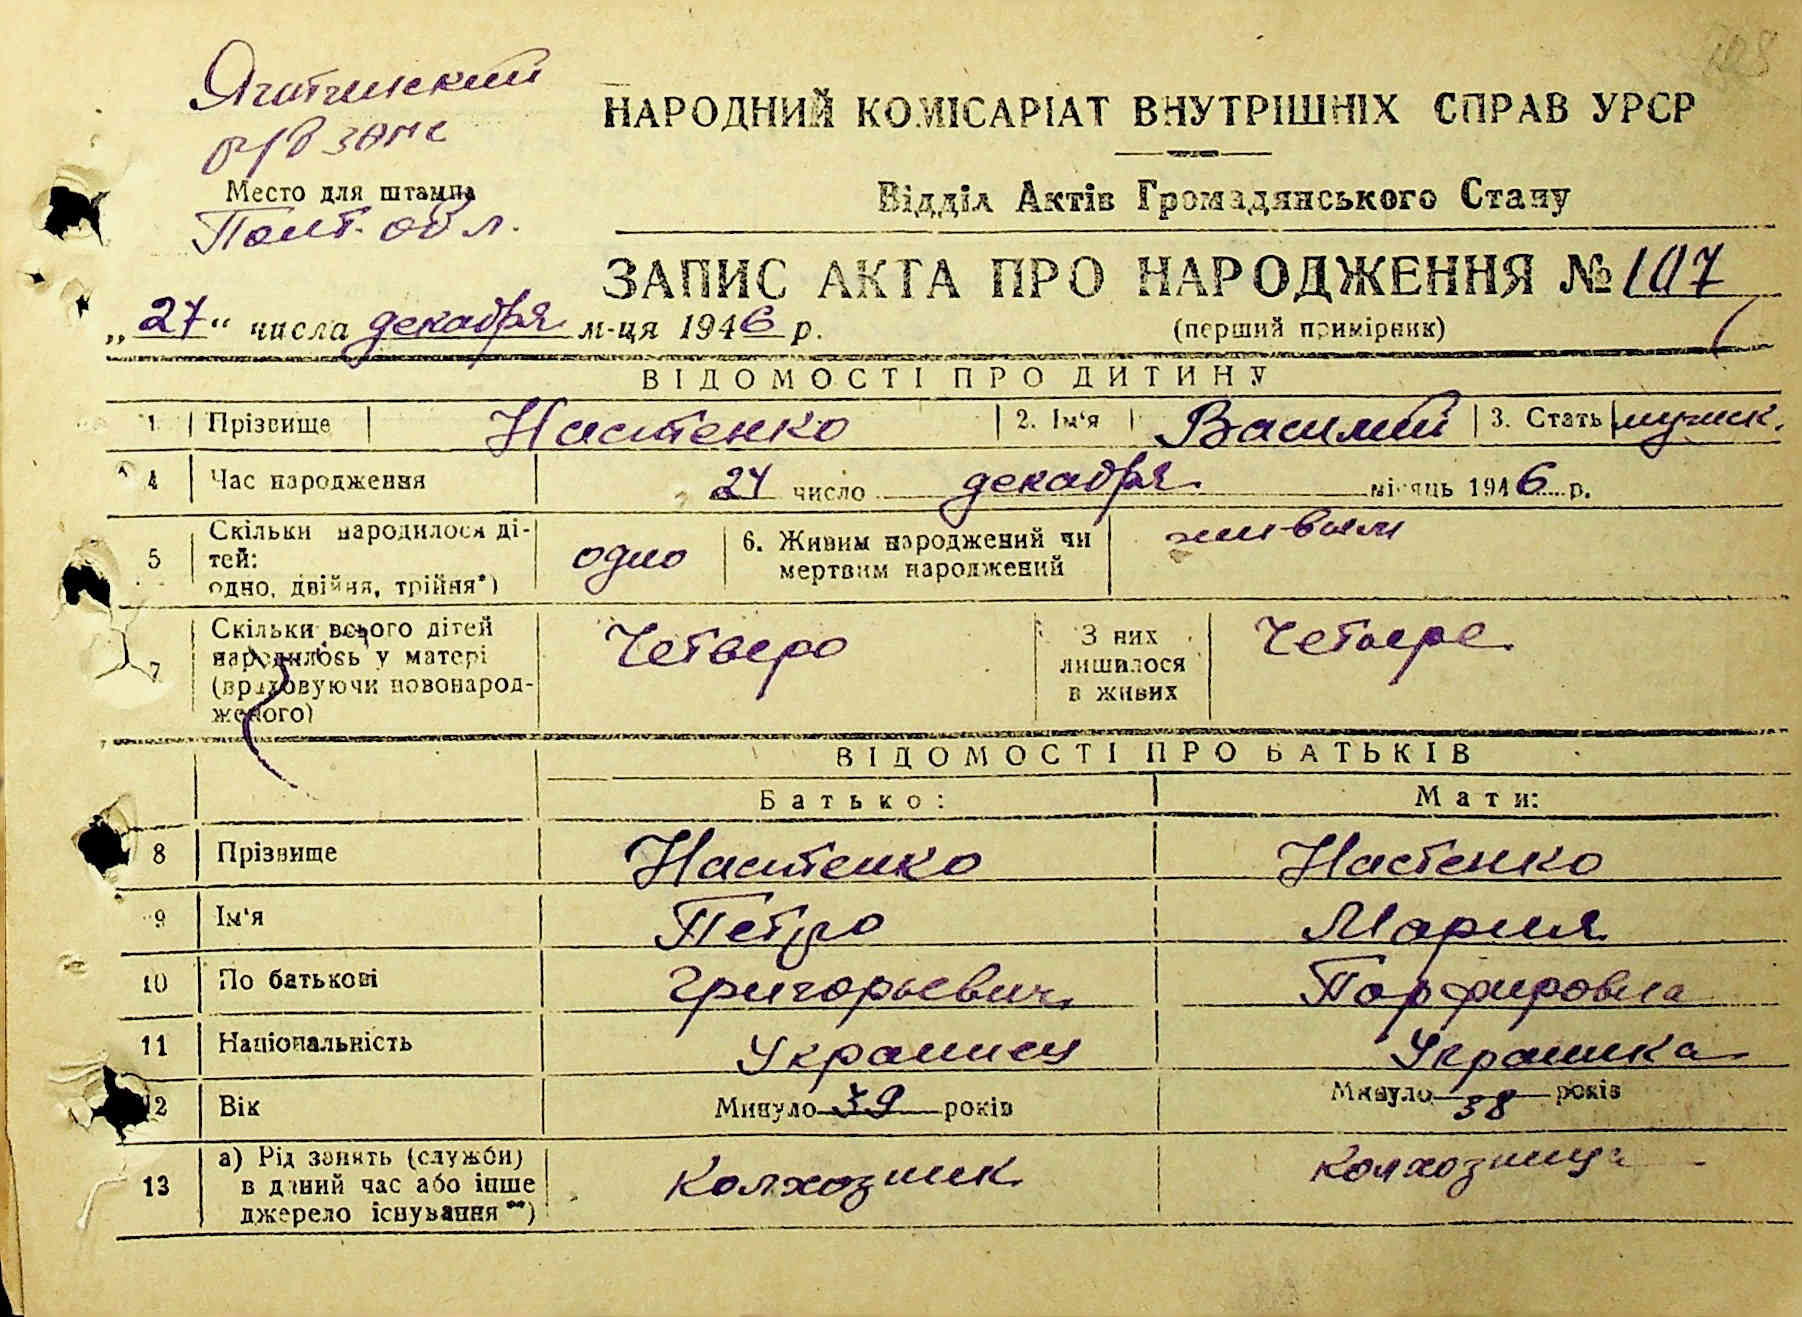 Яготинский
р/в загс
Место для штампа
Полт. обл.
128
НАРОДНИЙ КОМІСАРІАТ ВНУТРІШНІХ СПРАВ УРСР
Відділ Актів Громадянського Стану
ЗАПИС АКТА ПРО НАРОДЖЕННЯ № 107
„27“ числа декабря м-ця 1946 р.
(перший примірник)
ВІДОМОСТІ ПРО ДИТИНУ
1 Прізвище Настенко 2. Ім‘я Василий 3. Стать мужск.
4 Час народження 24 число декабря місяць 1946 р.
5 Скільки народилося ді-
тей:
одно, двійня, трійня*) одно 6. Живим народжений чи
мертвим народжений живым
7 Скільки всього дітей
народилось у матері
(враховуючи новонарод-
женого) Четверо З них
лишилося
в живих Четверо
ВІДОМОСТІ ПРО БАТЬКІВ
Батько: Мати:
8 Прізвище Настенко Настенко
9 Ім‘я Петро Мария
10 По батькові Григорьевич Порфировна
11 Національність Украинец Украинка
12 Вік Минуло 39 років Минуло 38 років
13 а) Рід занять (служби)
в даний час або інше
джерело існування**) Колхозник колхозница